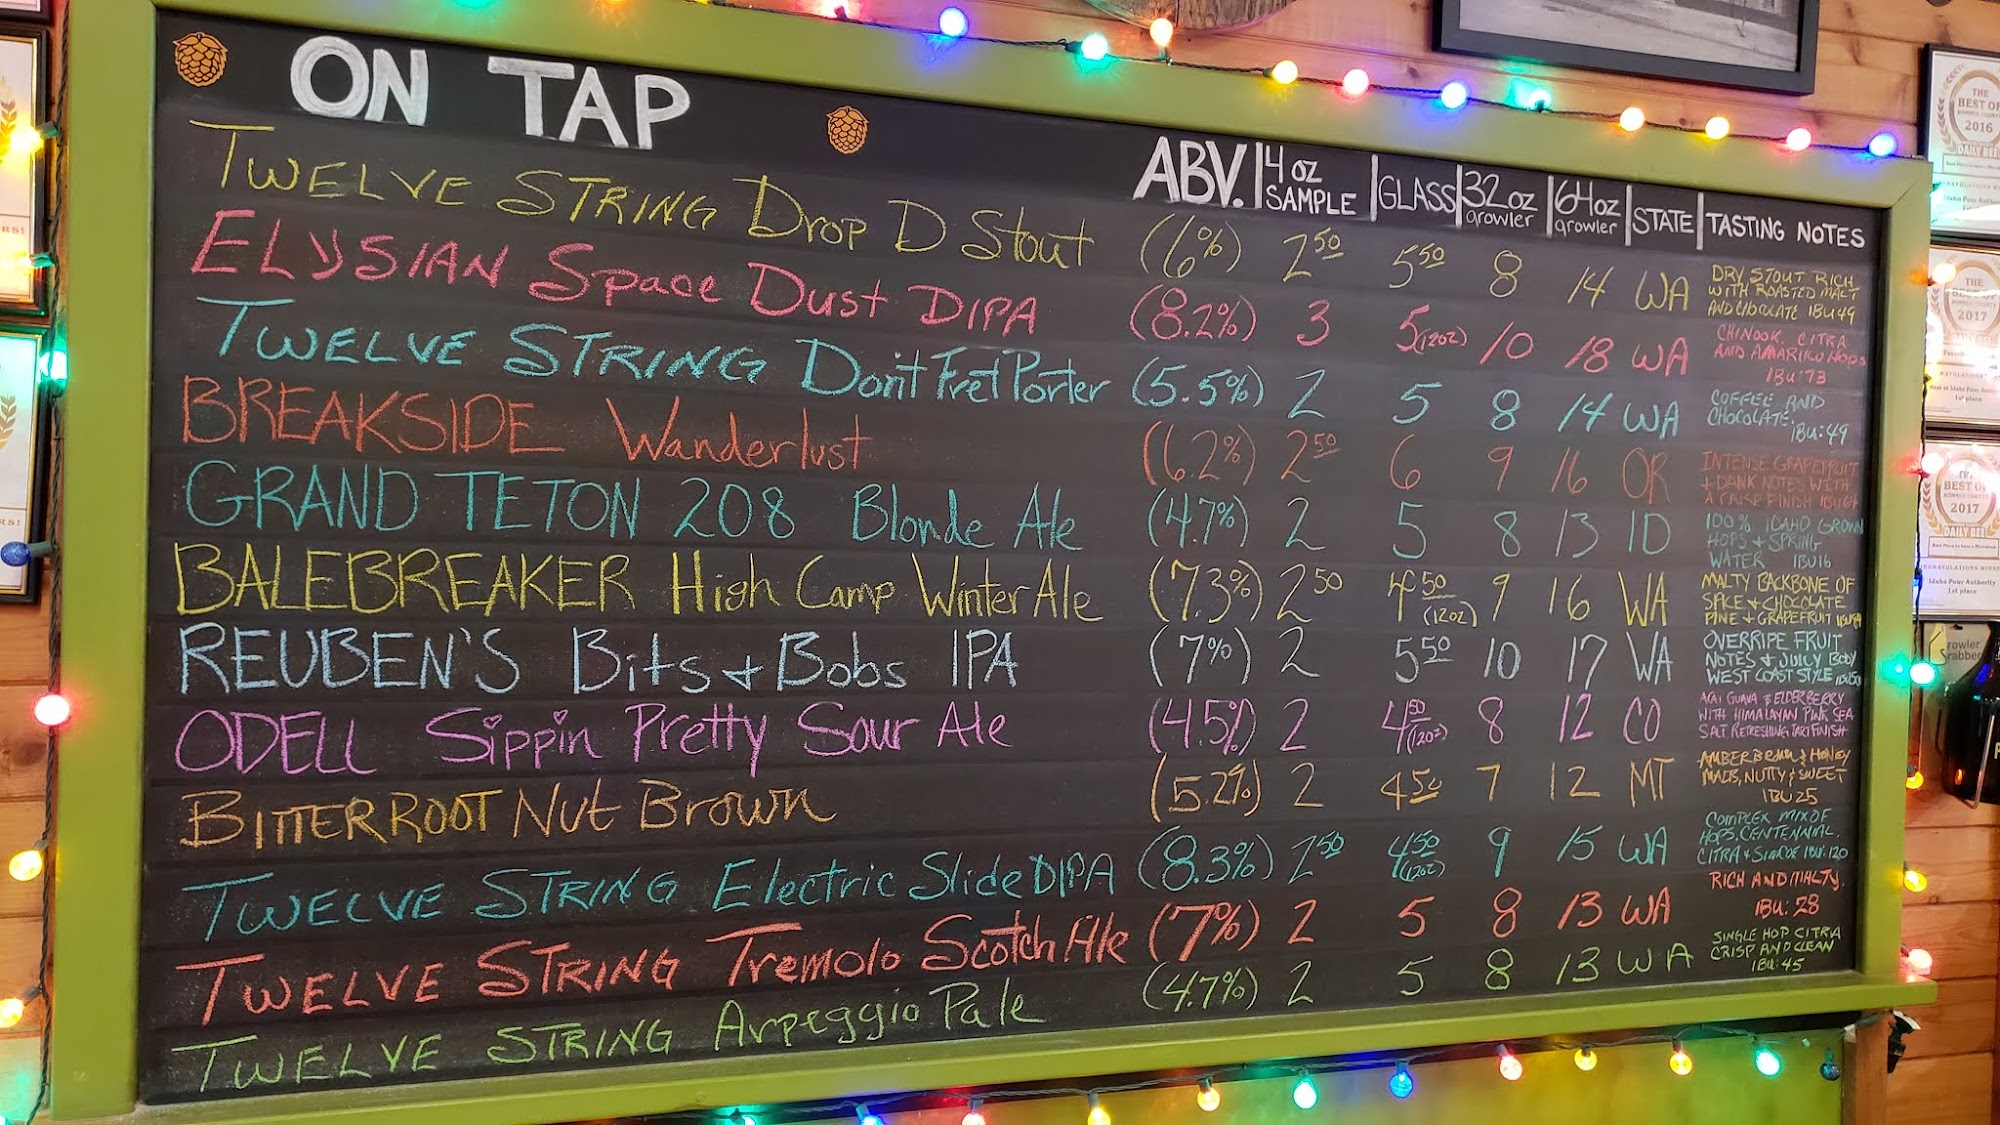 ON TAP
ABV. | 4 oz SAMPLE | GLASS | 32 oz growler | 64 oz growler | STATE | TASTING NOTES
TWELVE STRING Drop D Stout (6%) 2 50 5 50 8 14 WA
DRY STOUT RICH
WITH ROASTED MALT
AND CHOCOLATE IBU 49
ELYSIAN Space Dust DIPA (8.2%) 3 5 (12oz) 10 18 WA
CHINOOK, CITRA
AND AMARILLO HOPS
IBU: 73
TWELVE STRING Don't Fret Porter (5.5%) 2 5 8 14 WA
COFFEE AND
CHOCOLATE
IBU: 49
BREAKSIDE Wanderlust (6.2%) 2 50 6 9 16 OR
INTENSE GRAPEFRUIT
+ DANK NOTES WITH
A CRISP FINISH IBU
GRAND TETON 208 Blonde Ale (4.7%) 2 5 8 13 ID
100% IDAHO GROWN
HOPS + SPRING
WATER IBU 16
BALEBREAKER High Camp Winter Ale (7.3%) 2 50 4 50 (12oz) 9 16 WA
MALTY BACKBONE OF
SPICE + CHOCOLATE
PINE + GRAPEFRUIT
REUBEN'S Bits + Bobs IPA (7%) 2 5 50 10 17 WA
OVERRIPE FRUIT
NOTES + JUICY BODY
WEST COAST STYLE
ODELL Sippin Pretty Sour Ale (4.5%) 2 4 50 (12oz) 8 12 CO
ACAI GUAVA & ELDERBERRY
WITH HIMALAYAN PINK SEA
SALT REFRESHING TART FINISH
BITTERROOT Nut Brown (5.2%) 2 4 50 7 12 MT
AMBER BROWN & HONEY
MALTS, NUTTY & SWEET
IBU 25
TWELVE STRING Electric Slide DIPA (8.3%) 2 50 4 50 (12oz) 9 15 WA
COMPLEX MIX OF
HOPS. CENTENNIAL.
CITRA + SIMCOE IBU: 120
TWELVE STRING Tremolo Scotch Ale (7%) 2 5 8 13 WA
RICH AND MALTY.
IBU: 28
TWELVE STRING Arpeggio Pale (4.7%) 2 5 8 13 WA
SINGLE HOP CITRA
CRISP AND CLEAN
IBU: 45
THE
BEST OF
2016
DAILY BEE
THE
2017
1st place
BEST OF
2017
DAILY BEE
Idaho Pour Authority
1st place